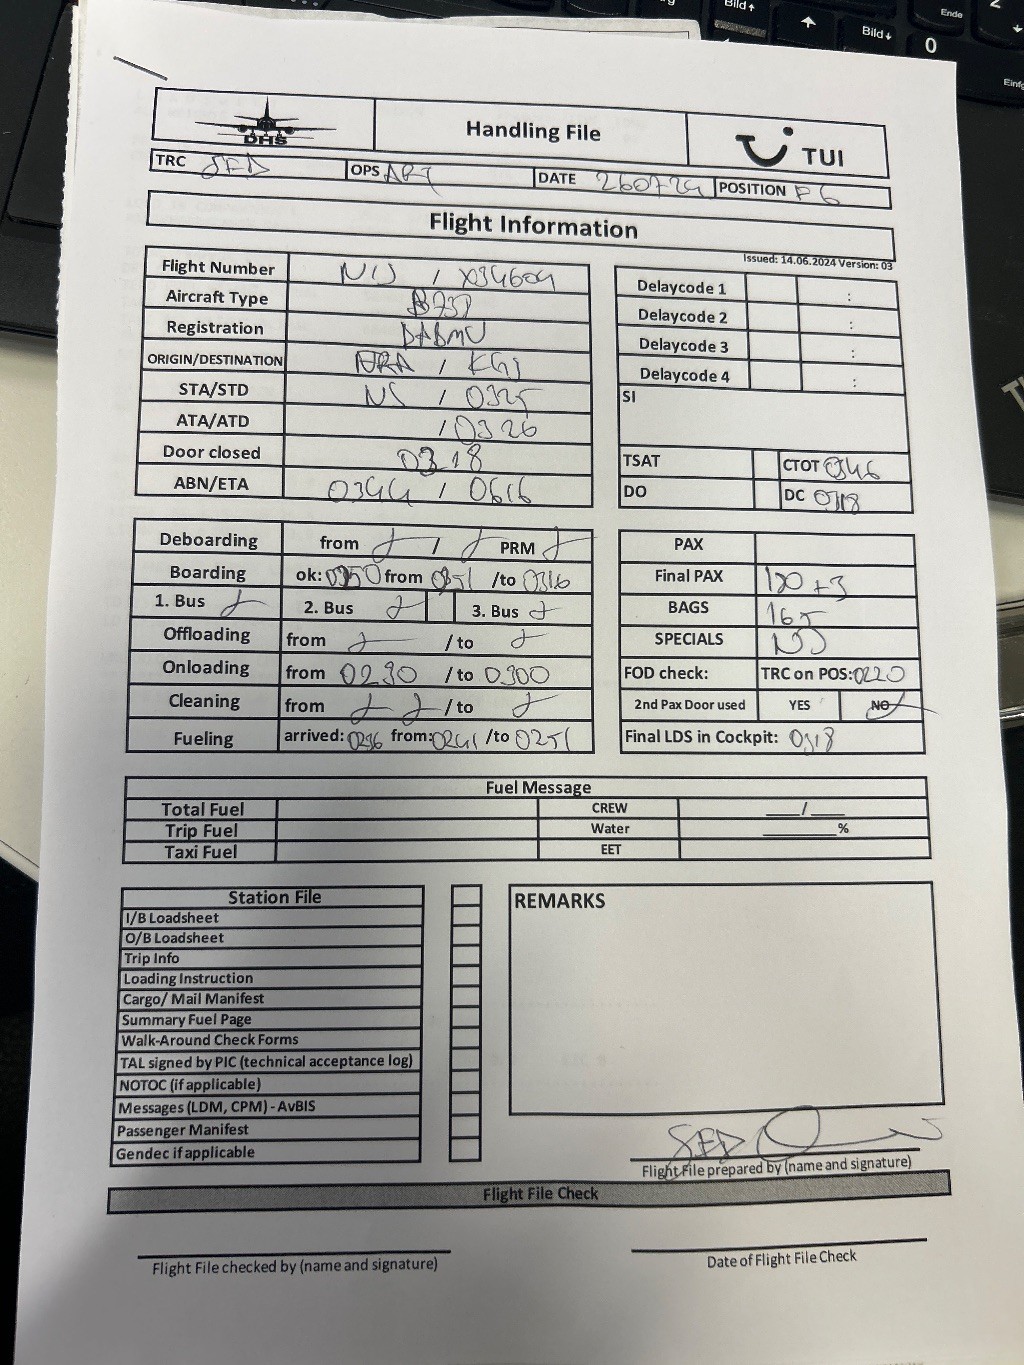 Bild↑
Ende
Bild↓
0
DHS
Handling File
TUI
TRC SED OPS DATE 260724 POSITION
Flight Information
Issued: 14.06.2024 Version: 03
Flight Number / X34604
Aircraft Type B737
Registration DABMV
ORIGIN/DESTINATION / KGS
STA/STD / 0325
ATA/ATD / 0326
Door closed 0318
ABN/ETA 0344 / 0616
Delaycode 1 :
Delaycode 2 :
Delaycode 3 :
Delaycode 4 :
SI
TSAT CTOT 0346
DO DC 0318
Deboarding from / PRM
Boarding ok: from /to 0316
1. Bus 2. Bus 3. Bus
Offloading from / to
Onloading from 0230 / to 0300
Cleaning from / to
Fueling arrived: 0236 from: 0241 /to 0251
PAX
Final PAX 180 +3
BAGS 165
SPECIALS
FOD check: TRC on POS: 0220
2nd Pax Door used YES NO
Final LDS in Cockpit: 0318
Fuel Message
Total Fuel CREW ___/___
Trip Fuel Water ______%
Taxi Fuel EET
Station File
I/B Loadsheet
O/B Loadsheet
Trip Info
Loading Instruction
Cargo/ Mail Manifest
Summary Fuel Page
Walk-Around Check Forms
TAL signed by PIC (technical acceptance log)
NOTOC (if applicable)
Messages (LDM, CPM) - AvBIS
Passenger Manifest
Gendec if applicable
REMARKS
SED
Flight File prepared by (name and signature)
Flight File Check
Flight File checked by (name and signature)
Date of Flight File Check